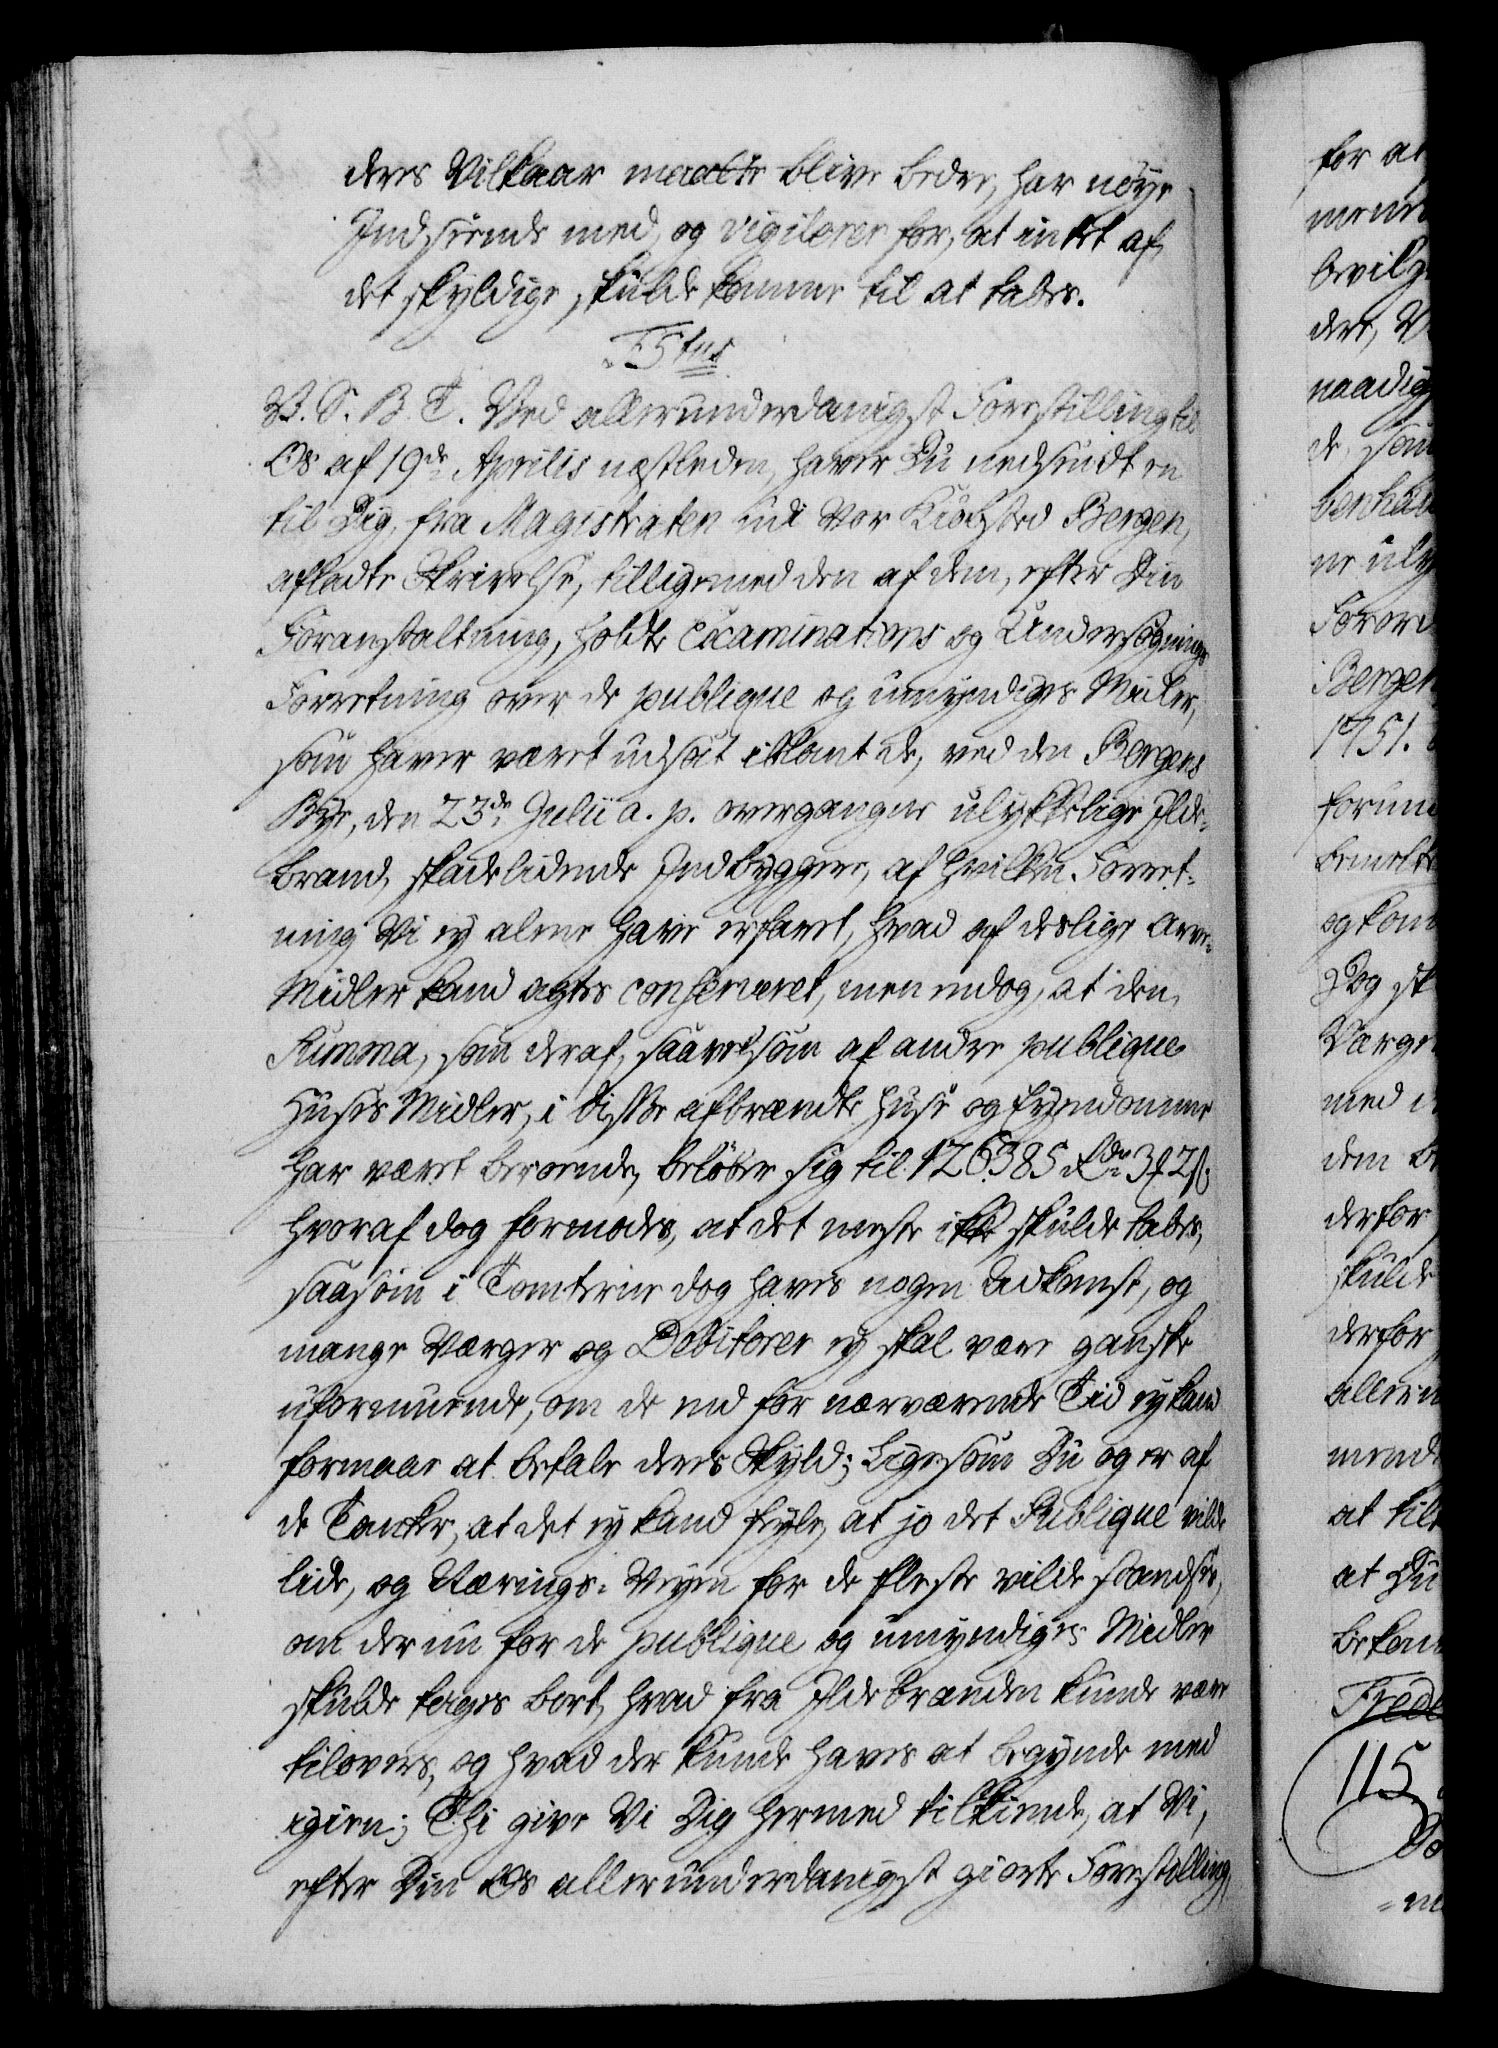 deres Vilkaar maatte blive bedre, har nøye
Indseende med, og vigilerer for, at intet af
det skyldige, skulde komme til at tabes.
F5tus
V. S. B. T. Ved allerunderdanigst Forestilling til
Os af 19de Aprilis næstleden, haver Du nedsendt en
til Dig, fra Magistraten udi Vor Kiøbsted Bergen,
afladte Skrivelse, tilligemed den af dem, efter Din
Foranstaltning, holdte Examinations og Undersøgnings
Forretning over de publique og umyndiges Midler,
som haver været udsat iblant de, ved den Bergens
Bye, den 23de Julii a. p. overgangne ulykkelige Ilde-
brand, skadelidende Indbyggere, af hvilken Forret-
ning Vi ey alene have erfaret, hvad af deslige Arve-
Midler kand agtes conserveret, men endog, at den
Summa, som deraf, saavelsom af andre publique
Huses Midler, i disse afbrændte Huse og Eyendomme
har været beroende, beløber sig til 126385 Rdr 3 2 s
hvoraf dog formodes, at det meste ikke skulde tabes,
saasom i Tomterne dog haves nogen Udkomst, og
mange Værger og Debitorer ey skal være ganske
uformuende, om de end for nærværende Tid ey kand
formaae at betale deres Skyld; Ligesom Du og er af
de Tanker, at det ey kand feyle, at jo det Publique vilde
lide, og Nærings-Veyen for de fleste vilde standses,
om der nu for de publique og umyndiges Midler
skulde tages bort, hvad fra Ildebranden kunde være
tilovers, og hvad der kunde haves at begynde med
igien; Thi give Vi Dig hermed tilkiende, at Vi,
efter Din Os allerunderdanigst giorte Forestilling,
for at
bevilg
naadig
de, som
Bergen
1751.
forun
bemelte
og kom
Dog sk
Værge
med
dem
derfor
skulde
derfor
allern
at til
at Du
Fred
115